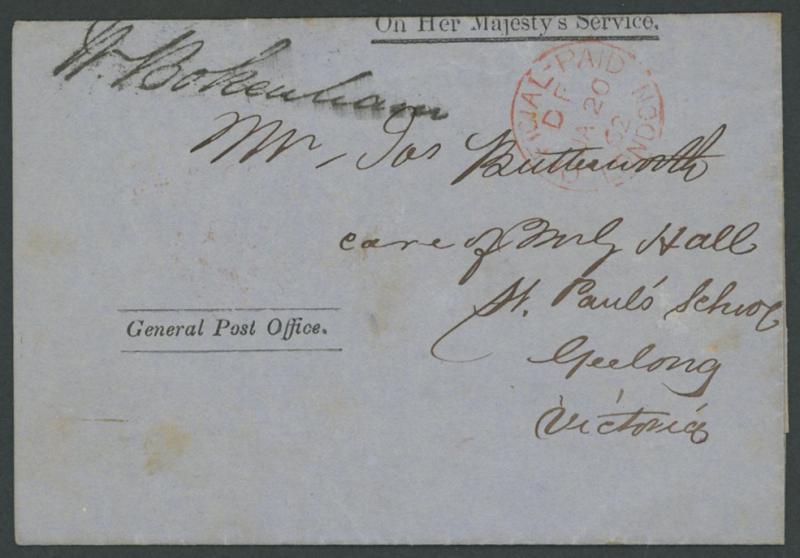 On Her Majesty's Service.
W. Bokenham
OFFICIAL PAID LONDON
DF
JA 20
62
Mr, Jos Butterworth
care of Hall
St. Paul's School
Geelong
Victoria
General Post Office.